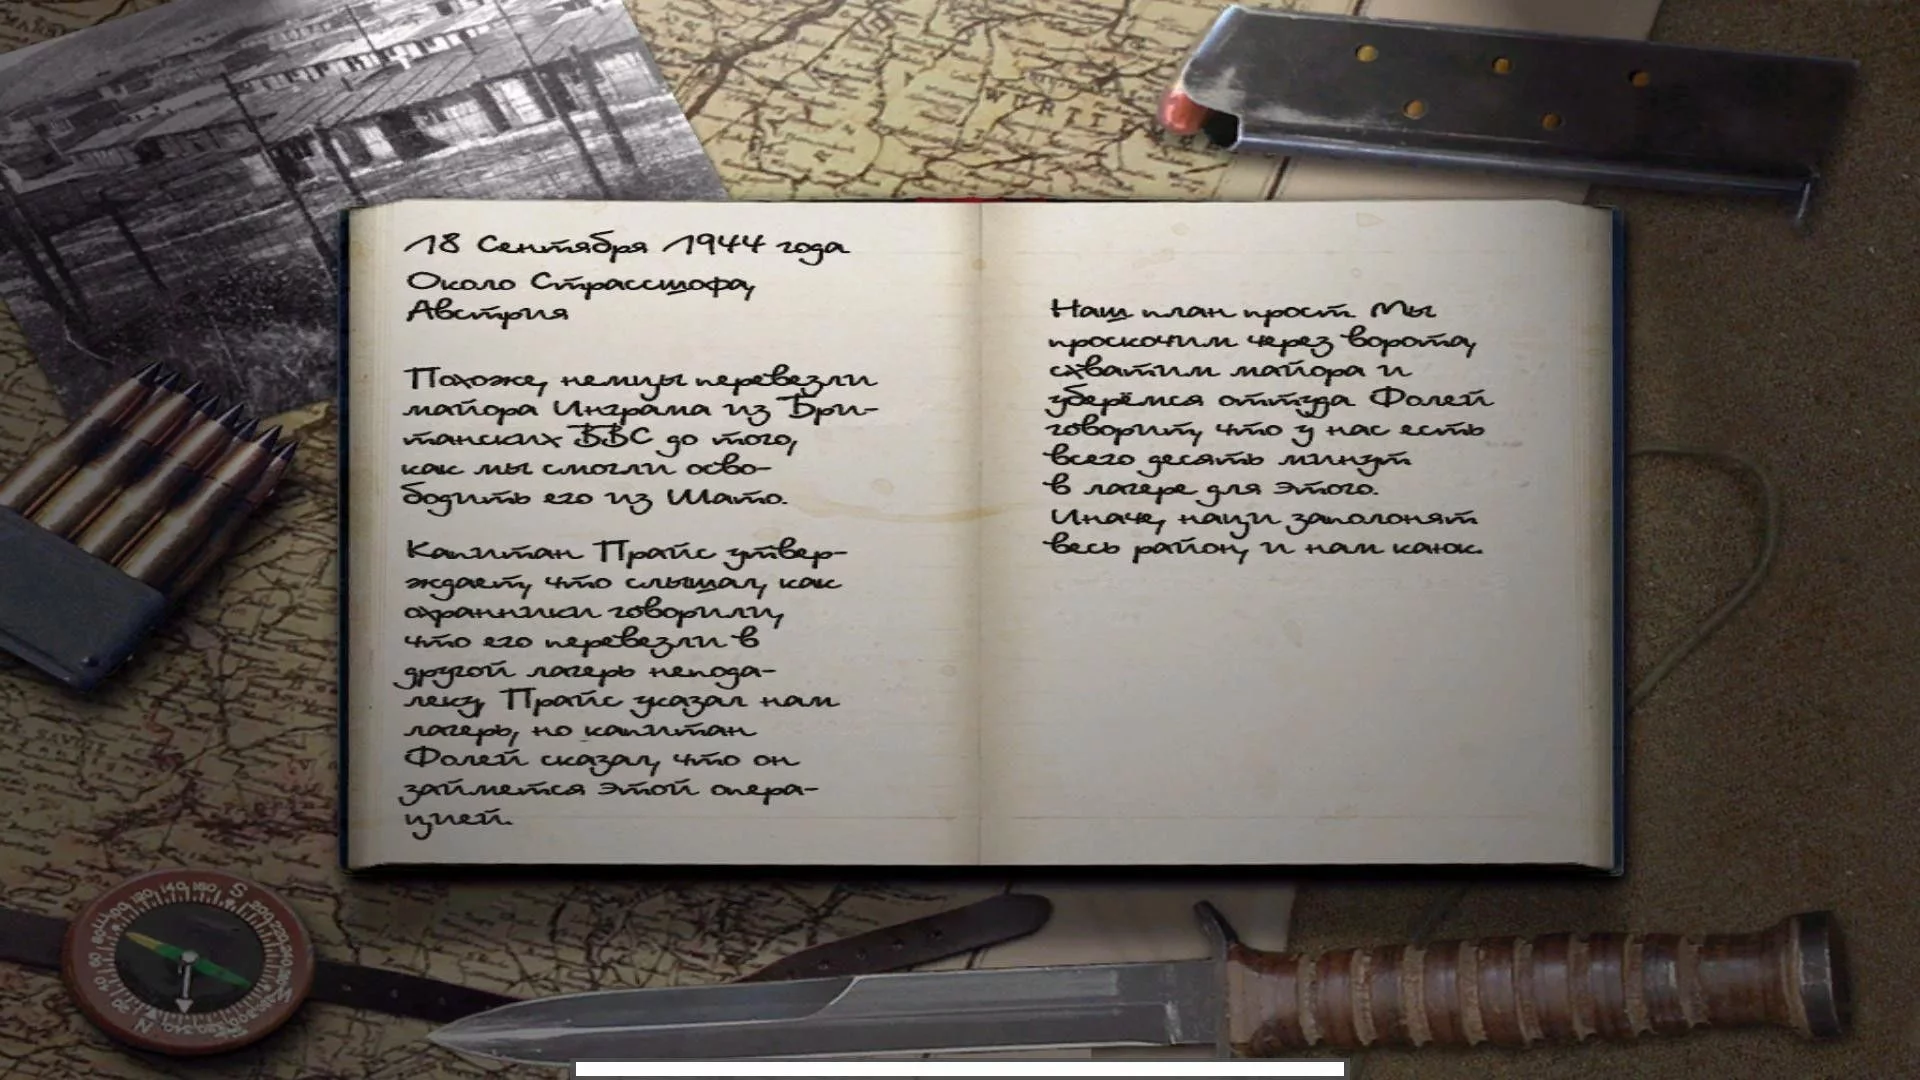 18 Сентября 1944 года
Около Страссшофа,
Австрия
Похоже, немцы перевезли
майора Инграма из Бри-
танских ВВС до того,
как мы смогли осво-
бодить его из Шато.
Капитан Прайс утвер-
ждает, что слышал, как
охранники говорили,
что его перевезли в
другой лагерь непода-
леку. Прайс указал нам
лагерь, но капитан
Фолей сказал, что он
займется этой опера-
цией.
Наш план прост. Мы
проскочим через ворота,
схватим майора и
уберёмся оттуда. Фолей
говорит, что у нас есть
всего десять минут
в лагере для этого.
Иначе, наци заполонят
весь район, и нам каюк.